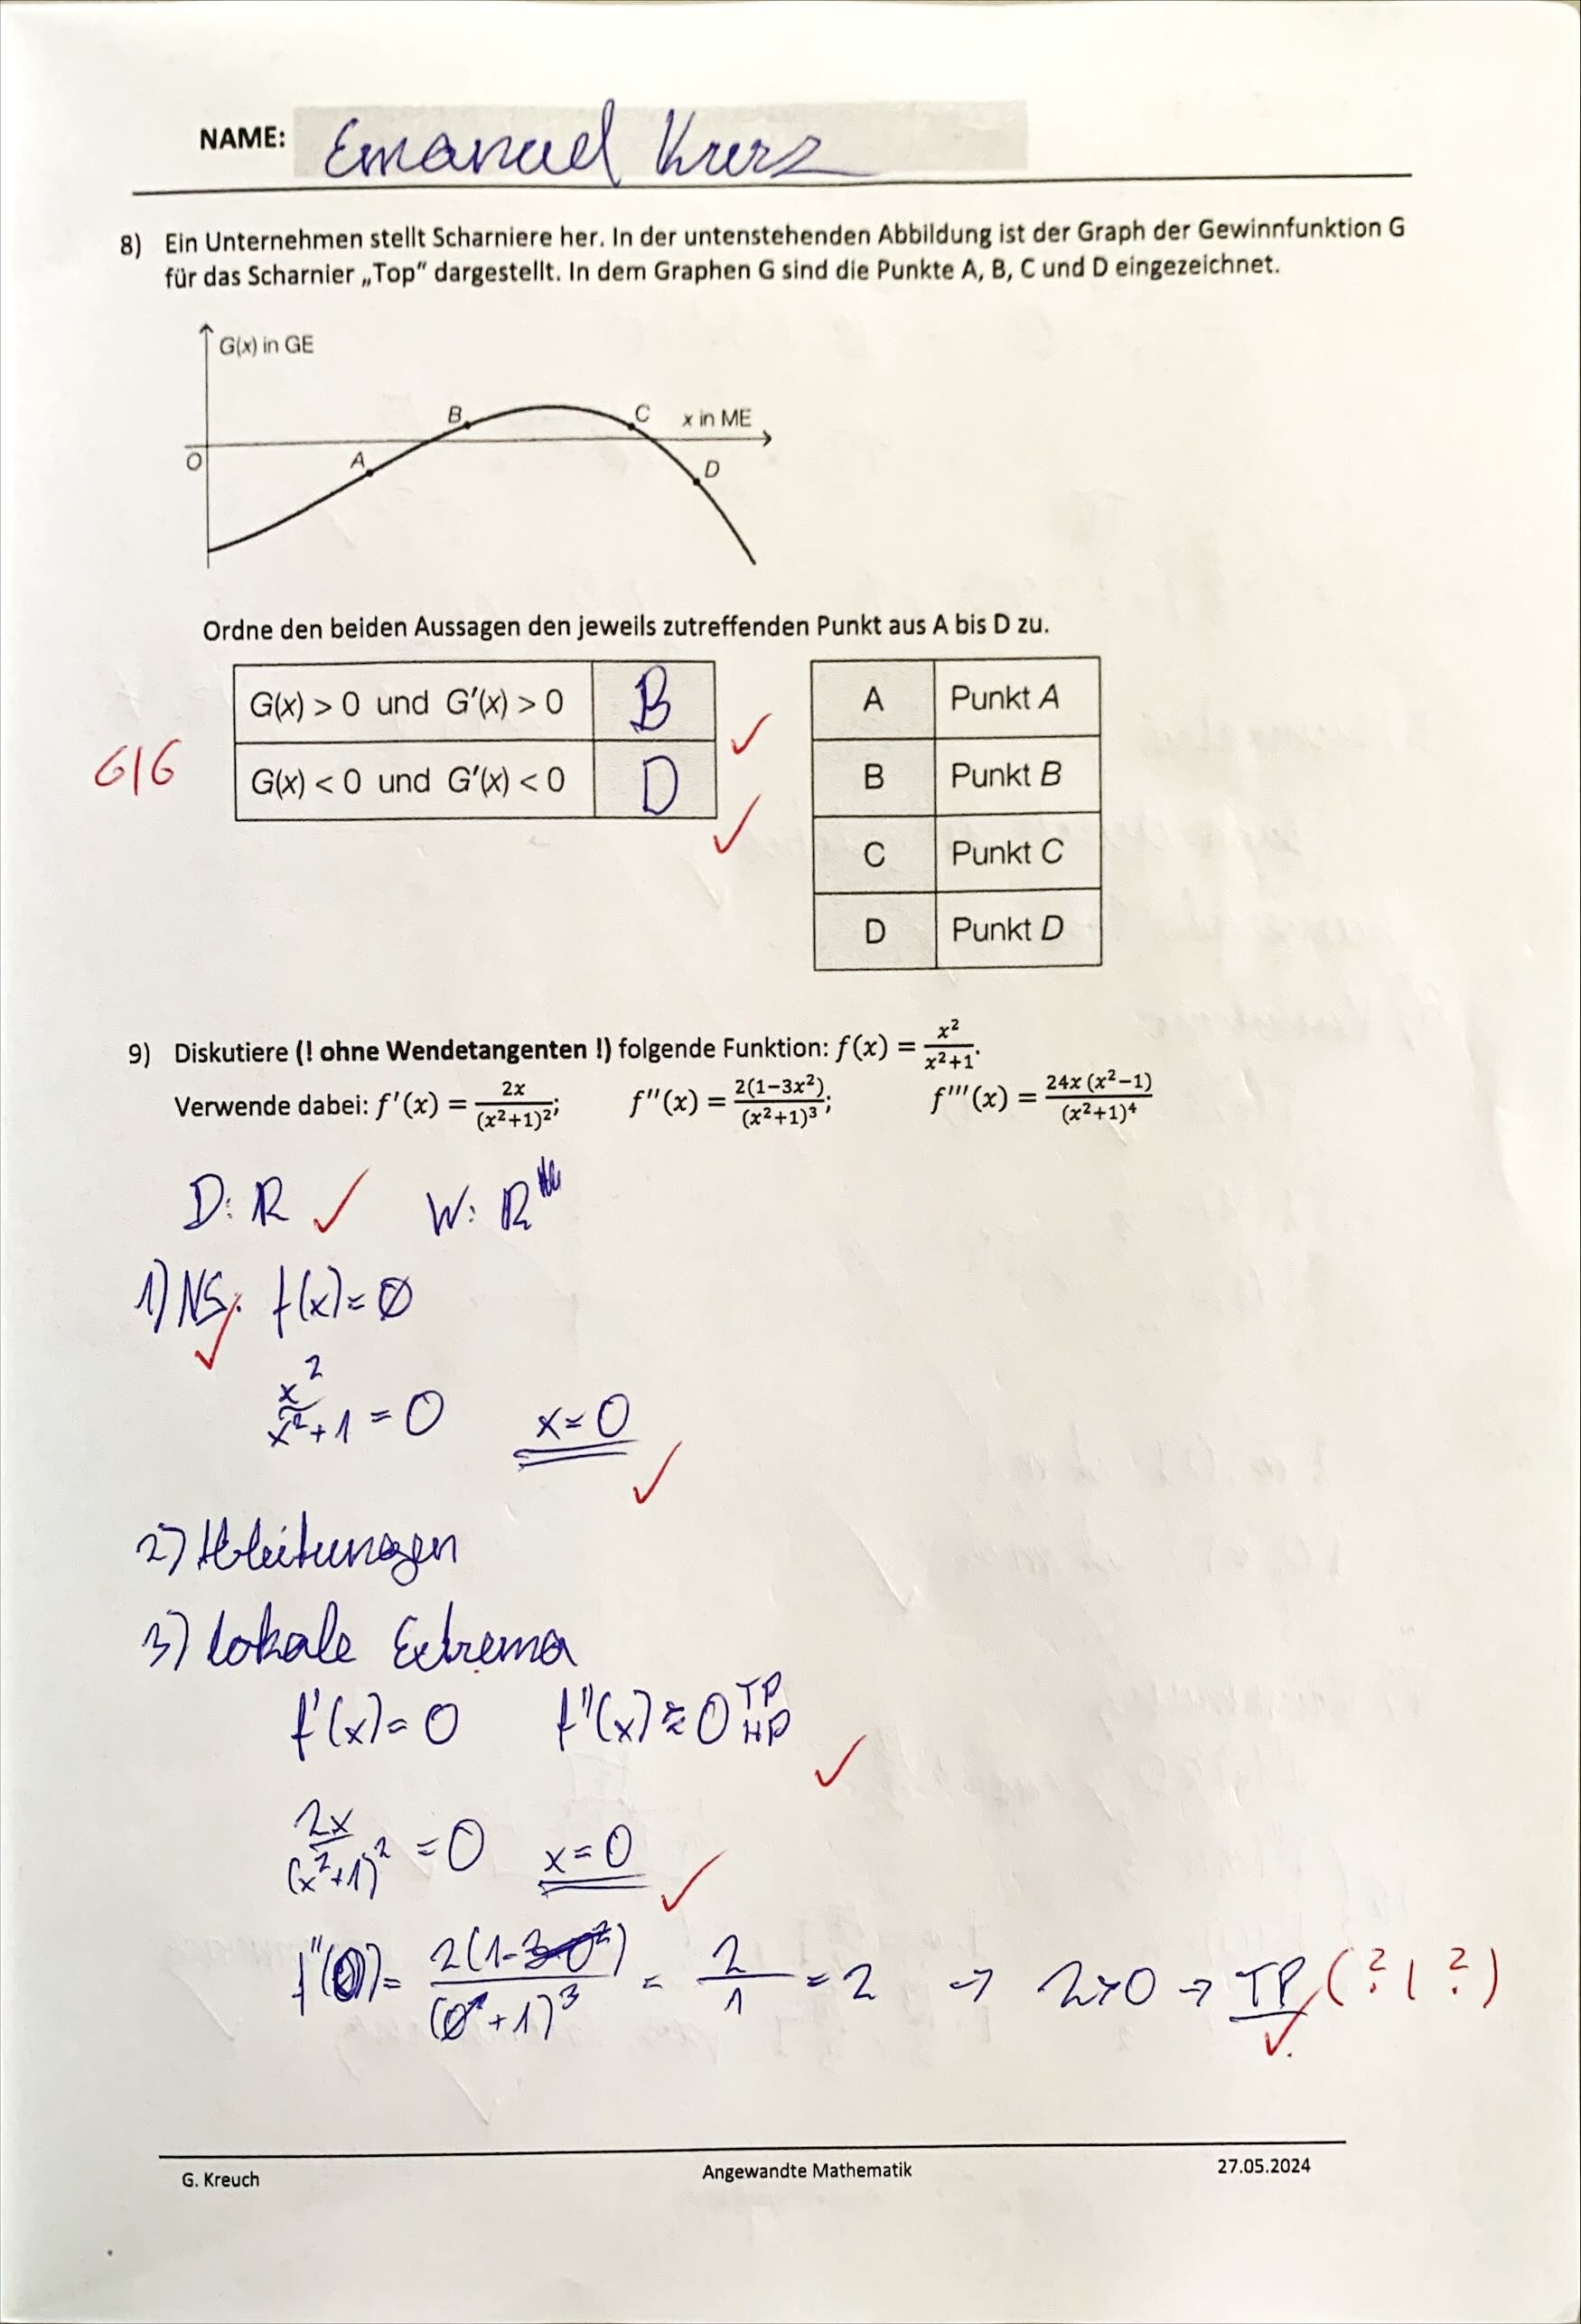 NAME: Emanuel Kurz
8) Ein Unternehmen stellt Scharniere her. In der untenstehenden Abbildung ist der Graph der Gewinnfunktion G
für das Scharnier „Top“ dargestellt. In dem Graphen G sind die Punkte A, B, C und D eingezeichnet.
G(x) in GE
B
C
x in ME
0
A
D
Ordne den beiden Aussagen den jeweils zutreffenden Punkt aus A bis D zu.
G(x) > 0 und G′(x) > 0 B ✓
G(x) < 0 und G′(x) < 0 D ✓
6/6
A Punkt A
B Punkt B
C Punkt C
D Punkt D
9) Diskutiere (! ohne Wendetangenten !) folgende Funktion: f(x) = x²/(x²+1).
Verwende dabei: f′(x) = 2x/(x²+1)²; f″(x) = 2(1−3x²)/(x²+1)³; f‴(x) = 24x(x²−1)/(x²+1)⁴
D: ℝ ✓ W: ℝ
1) NS: f(x) = 0 ✓
x²/(x²+1) = 0 x = 0 ✓
2) Ableitungen
3) lokale Extrema
f′(x) = 0 f″(x) ≷ 0 TP HP ✓
2x/(x²+1)² = 0 x = 0 ✓
f″(0) = 2(1-3·0²)/(0²+1)³ = 2/1 = 2 → 2>0 → TP ✓ (?|?)
G. Kreuch Angewandte Mathematik 27.05.2024